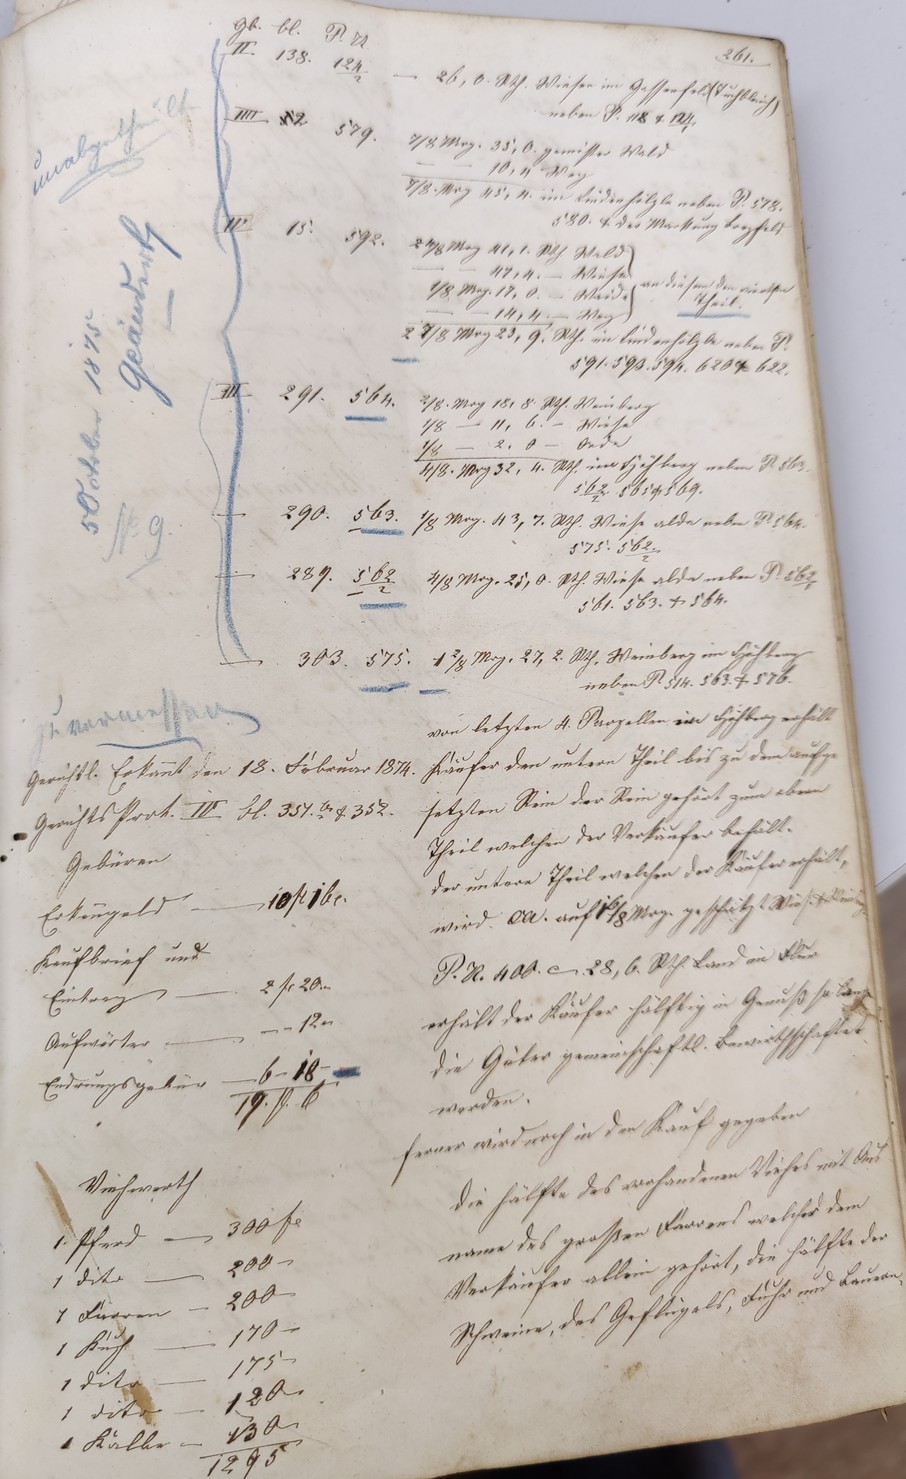 261.
Gb. bl. P. N
II. 138. 124/2 — 26, 0. Rth. Wiesen im Gassenfeld (Tuchbleich)
neben P. 118 & 124.
IIII 12 579. 7/8 Mrg. 35, 0. gemischter Wald
— — 10, 4 Weg
7/8. Mrg 45, 4. im Lindenhölzle neben P. 578.
580. & der Markung
III 15. 592. 2 4/8 Mrg 41, 1. Rth Wald
— — 47, 4. — Wiese
1/8 Mrg. 17, 0. — Weide
— — 14, 4. — Weg
an diesem den vierten Theil.
2 7/8 Mrg 23, 9. Rth. im Lindenhölzle neben P.
591. 590. 594. 620 & 622.
III 291. 564. 2/8. Mrg 18, 8. Rth. Weinberg
1/8 — 11, 6. — Wiese
1/8 — 2, 0 — Oede
4/8. Mrg 32, 4. Rth. im Hohberg neben P. 563.
562/2. 565 & 569.
— 290. 563. 1/8 Mrg. 43, 7. Rth. Wiese alda neben P. 564.
575. 562/2
— 289. 562/2 4/8 Mrg. 25, 0. Rth. Wiese alda neben P. 562/1
561. 563. & 564.
— 303. 575. 1 2/8 Mrg. 27, 2. Rth. Weinberg im Hohberg
neben P. 514. 563. & 576.
unabgetheilt
Geändert
5 October 1875
N. 9.
zu vermessen
von letzten 4. Parzellen im Hohberg erhält
Käufer den untern Theil bis zu dem aufge
setzten Rein der Rein gehört zum obern
Theil welchen der Verkäufer behält.
der untere Theil welchen der Käufer erhält,
wird ca. auf 1 6/8 Mrg. geschäzt
P. N. 400. c 28, 6. Rth. Land im Flur
erhält der Käufer hälftig in Genuß so lang
die Güter gemeinschaftl. bewirthschaftet
werden.
ferner wird noch in den Kauf gegeben
die Hälfte des vorhandenen Viehes mit Aus
name des großen Farrens welcher dem
Verkäufer allein gehört, die Hälfte der
Schweine, des Geflügels, Fuhr und Bauern
Gerichtl. Erkannt den 18. Februar 1874.
Gerichts Prot. III bl. 351. & 352.
Gebüren
Erkengeld — 10 f 16.
Kaufbrief und
Eintrag — 2 f 20.
Aufwärter — — 12
Endrungsgebür — 6 — 18
19. f. 6
Viehwerth
1. Pferd — 300 f
1 dito — 200 —
1 Farren — 200 —
1 Kuh — 170 —
1 dito — 175 —
1 dito — 120
1 Kalbe — 130
1295